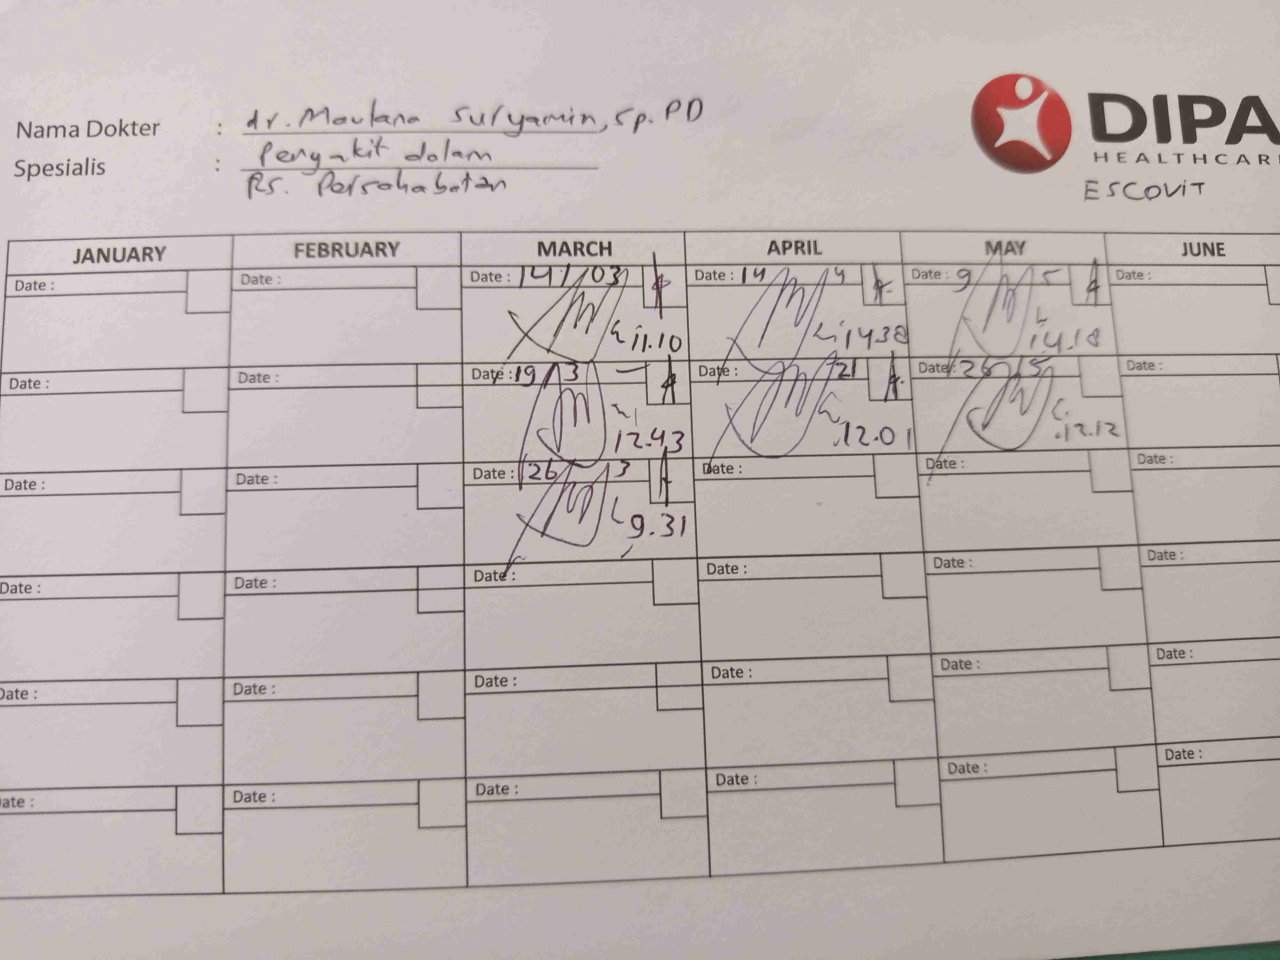 Nama Dokter : dr. Maulana Suryamin, Sp. PD
Spesialis : Penyakit dalam
RS. Persahabatan
DIPA
HEALTHCARE
ESCOVIT
JANUARY FEBRUARY MARCH APRIL MAY JUNE
Date : Date : Date : 14/03 Date : 14 4 Date : 9 5 Date :
11.10 14.38 14.18
Date : Date : Date : 19 3 Date : 21 Date : 26 5 Date :
12.43 12.01 12.12
Date : Date : Date : 26 3 Date : Date : Date :
9.31
Date : Date : Date : Date : Date : Date :
Date : Date : Date : Date : Date : Date :
Date : Date : Date : Date : Date : Date :